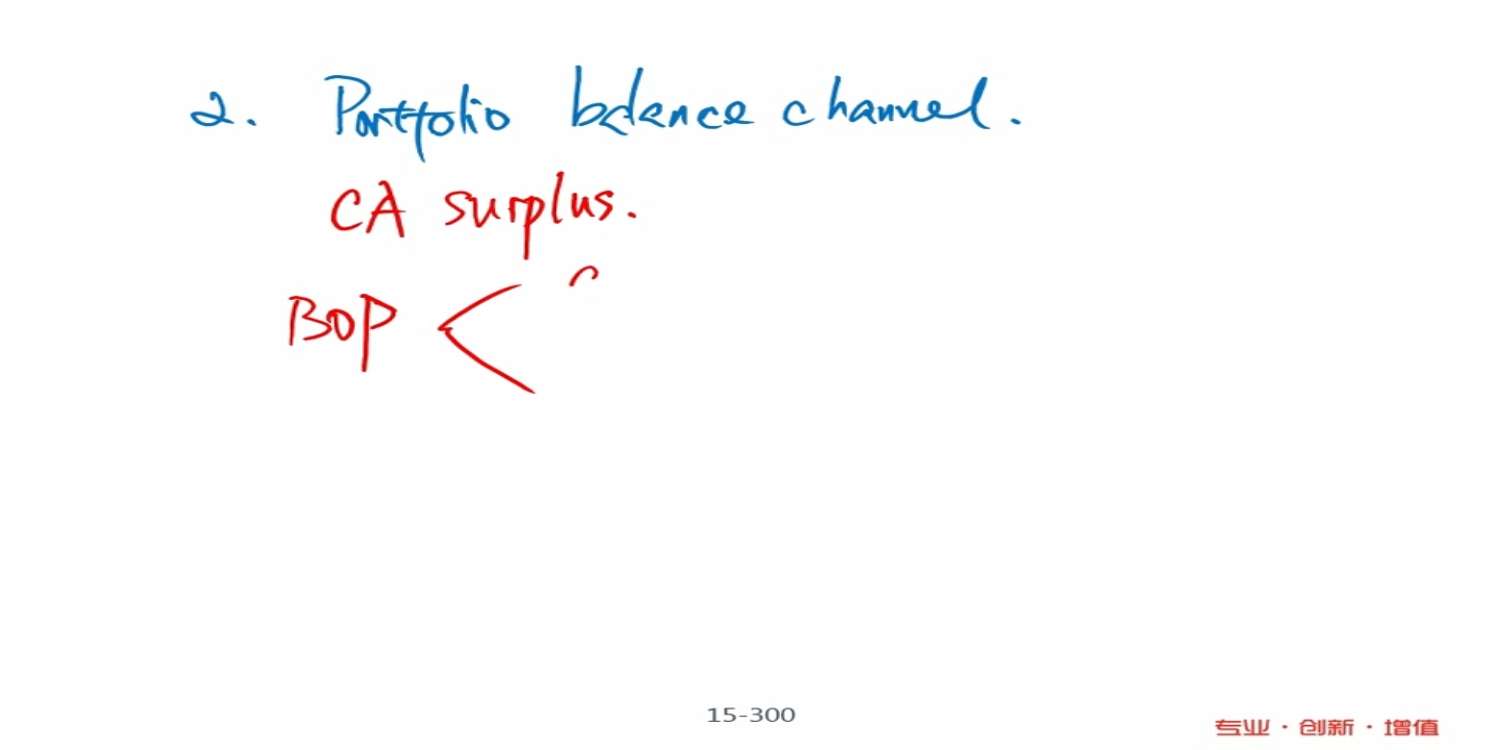 2. Portfolio balance channel.
CA surplus.
BOP
15-300
专业·创新·增值